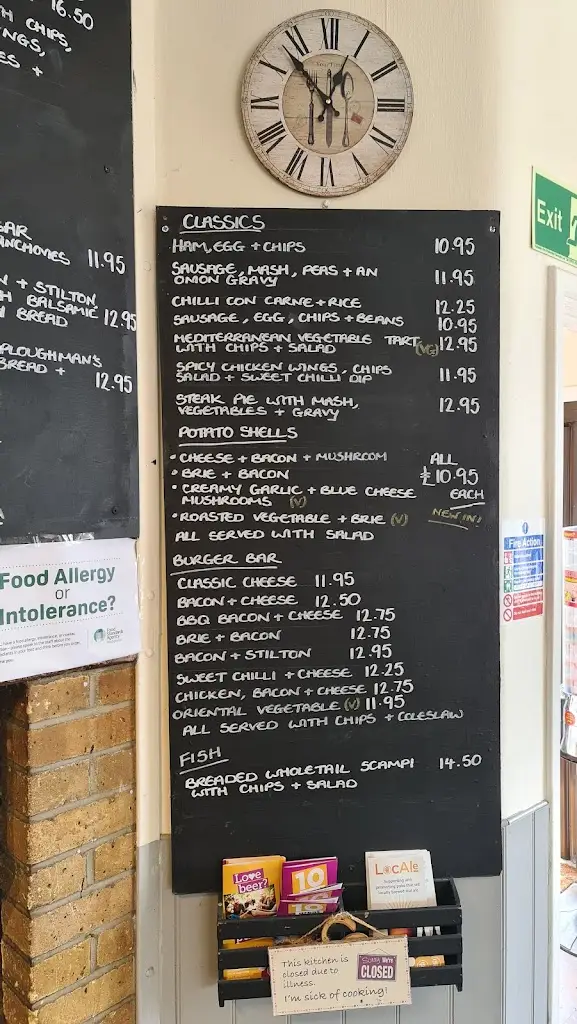 16.50
TH CHIPS,
NGS,
ES +
GAR
ANCHOVIES 11.95
N + STILTON,
H BALSAMIC 12.95
BREAD
PLOUGHMAN'S
BREAD +
12.95
Food Allergy
or
Intolerance?
CLASSICS
HAM, EGG + CHIPS 10.95
SAUSAGE, MASH, PEAS + AN
ONION GRAVY 11.95
CHILLI CON CARNE + RICE 12.25
SAUSAGE, EGG, CHIPS + BEANS 10.95
MEDITERRANEAN VEGETABLE TART
WITH CHIPS + SALAD (VG) 12.95
SPICY CHICKEN WINGS, CHIPS
SALAD + SWEET CHILLI DIP 11.95
STEAK PIE WITH MASH,
VEGETABLES + GRAVY 12.95
POTATO SHELLS
• CHEESE + BACON + MUSHROOM
• BRIE + BACON
• CREAMY GARLIC + BLUE CHEESE
MUSHROOMS (V)
• ROASTED VEGETABLE + BRIE (V)
ALL SERVED WITH SALAD
ALL
£10.95
EACH
NEW IN!
BURGER BAR
CLASSIC CHEESE 11.95
BACON + CHEESE 12.50
BBQ BACON + CHEESE 12.75
BRIE + BACON 12.75
BACON + STILTON 12.95
SWEET CHILLI + CHEESE 12.25
CHICKEN, BACON + CHEESE 12.75
ORIENTAL VEGETABLE (V) 11.95
ALL SERVED WITH CHIPS + COLESLAW
FISH
BREADED WHOLETAIL SCAMPI 14.50
WITH CHIPS + SALAD
Exit
Fire Action
Love
beer?
10
10
LocAle
This kitchen is
closed due to
illness.
I'm sick of cooking!
SORRY WE'RE
CLOSED